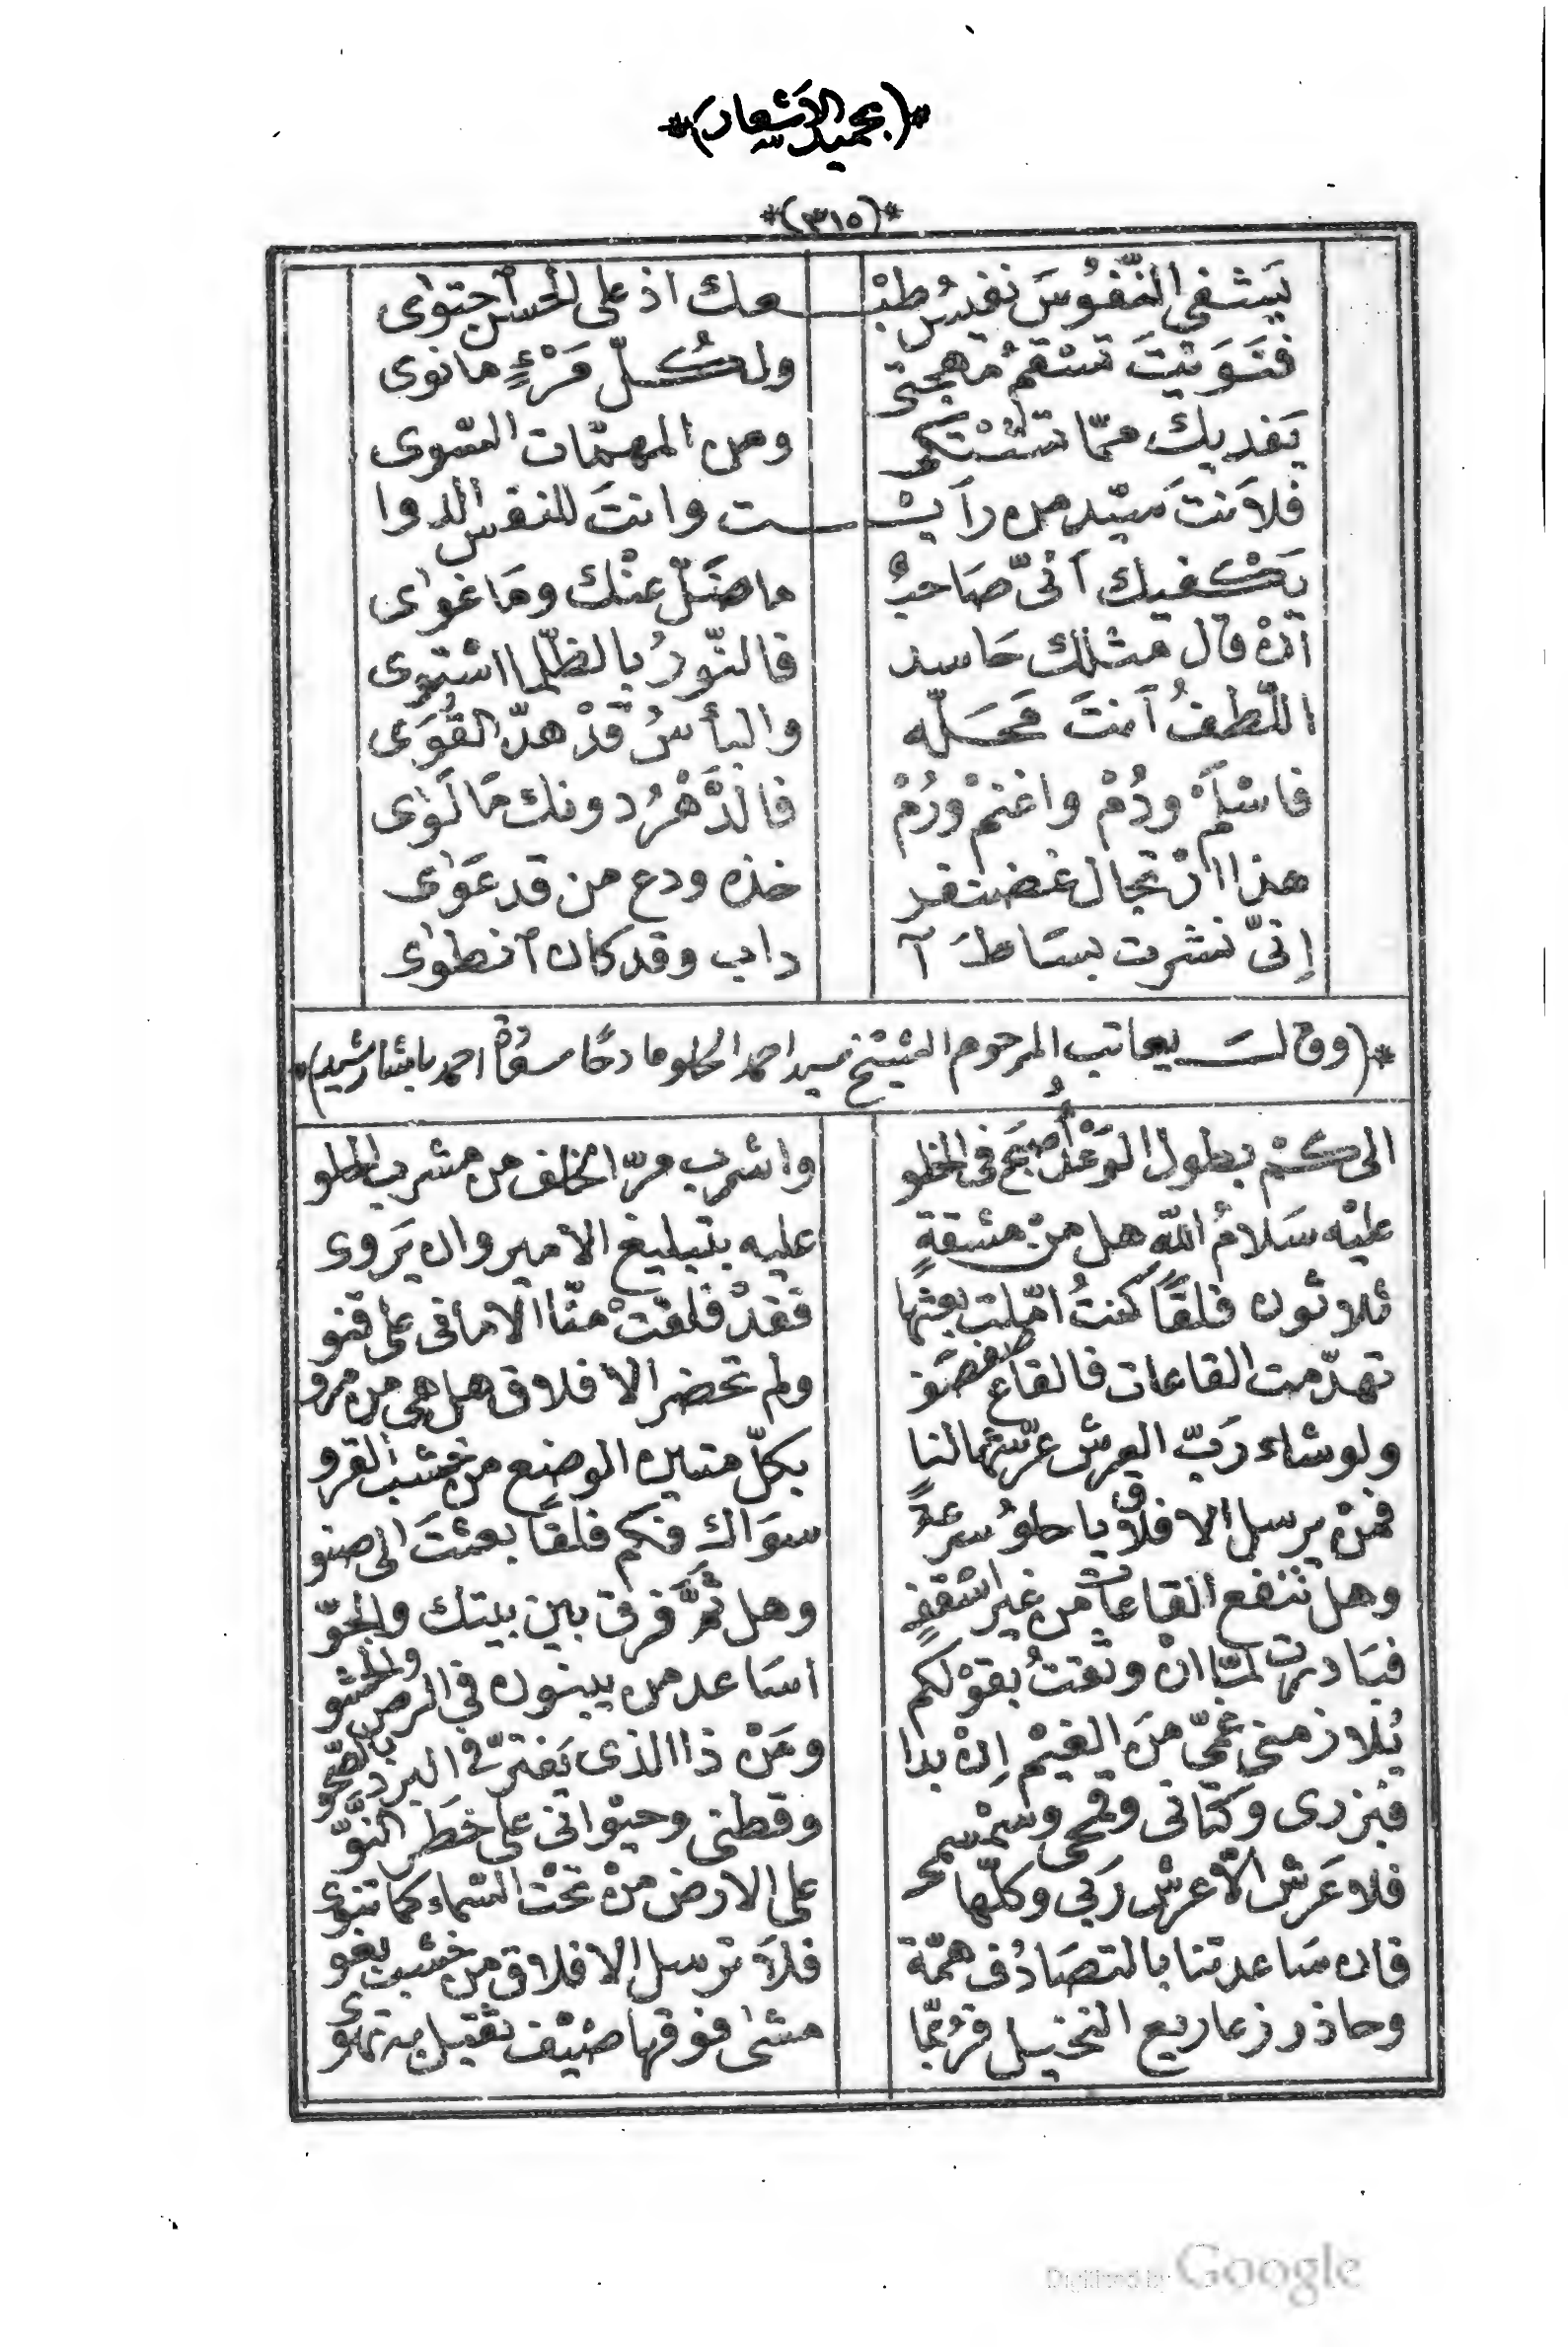 *(بحميد الأشعار)*
*(٣١٥)*
يَشفي النّفوُسَ نفيسُ طبْـ ـعك اذ على الحسن آجتوٰى
فنَوَيْتَ تسْقمُ مهجتى ولكُلّ مَرْءٍ مانوى
يَفديك ممّا تشْتكى ومن المهمّات السّوى
فلاَنت سَيّد من رأيْـ ـت وانتَ للنفس الدوا
يَكْفيك آنىّ صَاحبٌ ماضَلّ عنْك ومَاغوٰى
انْ قال مثلك حَاسد فالنّورُ بالظلّما اسْتوى
اللّطفُ آنتَ مَحَلّه والبأسُ قدْ هدّ القُوَى
فاسْلَمْ ودُمْ واغنمْ ورُمْ فالدَّهْرُ دونك مَا لَوٰى
هذا ارْتجال غضنفر خذه ودع من قد عَوٰى
إنىّ نشرت بسَاطَ آ داب وقد كان آنطوٰى
*(وقال يعاتب المرحوم الشيخ سيد احمد الحلو مادحًا سعادة احمد باشا رشيد)*
الى كمْ بطول الوَعْد أُصبح فى الخلو واشرب مرّ الخلف من مشرب الحلو
عليْه سَلامُ اللّه هل منْ مشقةٍ عليه بتبليغ الأمير وان يَروى
ثلاثون فلقًا كنتُ امّلت بعثها فقدْ فلقتْ منّا الامانى على قنو
تهدّمت القاعات فالقاع صفصَف ولم تحضر الأفلاق هل هى من مرو
ولو شاء رَبّ العرش عرّشها لنا بكلّ متين الوضع من خشب القرو
فمنْ يرسل الافلاق ياحلوُ سرعةً سوَاك فكم فلقًا بعثتَ الى صنو
وهل تنفع القاعات من غير اسْقفٍ وهل ثَمَّ فرق بين بيتك والجوّ
فبَادرت لمّا انْ وثقتُ بقوْلكم اسَاعد من يبنون فى الرص والحشو
يُلازمنى غمّى منَ الغيْم إنْ بدا ومَنْ ذا الذى يَغترّ فى البرد بالصّحو
فبزرى وكتّانى وقمحى وسمْسمى وقطنى وحيْوانى على خَطَر النوَّ
فلا عَرْش الاّ عرْش رَبى وكلّها على الارض منْ تحْت السّماء كما تنوى
فان سَاعدتنا بالتصَادُف همّة فلاَ ترسل الافلاق من خشب يغو
وحاذر زعاريع النخيل فرُبّما مشىٰ فوقها ضيْف ثقيل به تهوى
Digitized by Google